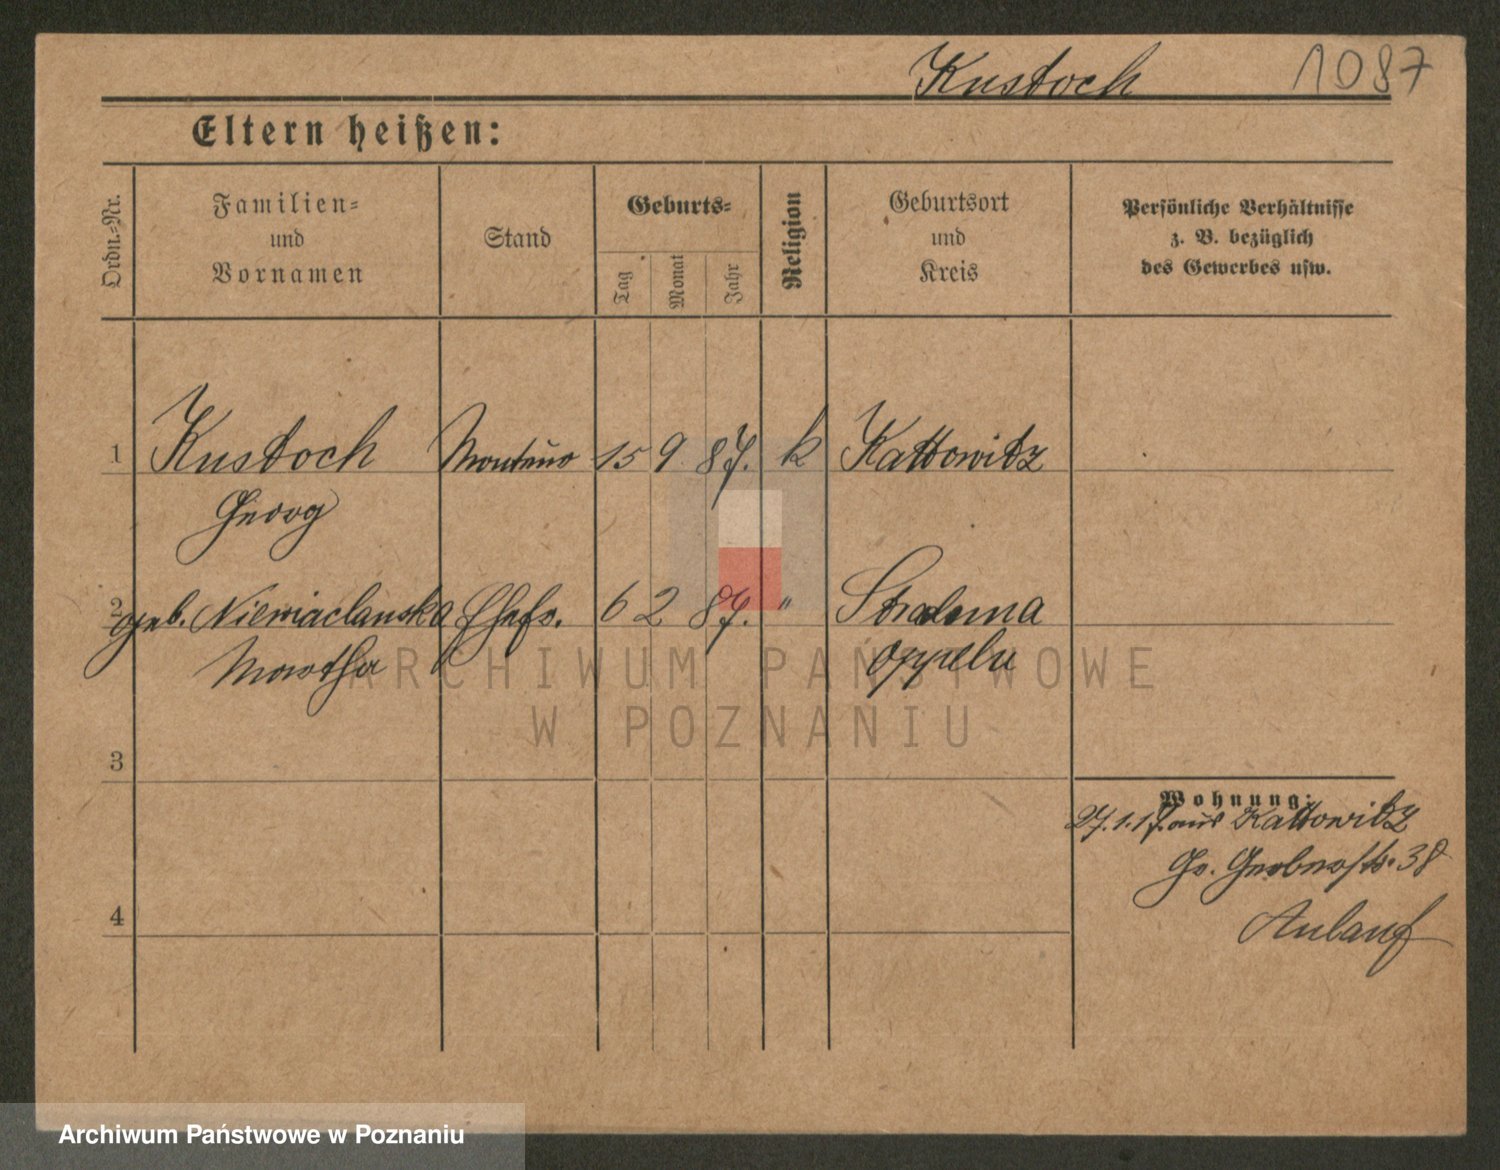 Kustoch 1087
Eltern heißen:
Ordn.-Nr.
Familien-
und
Vornamen
Stand
Geburts-
Tag
Monat
Jahr
Religion
Geburtsort
und
Kreis
Persönliche Verhältnisse
z. B. bezüglich
des Gewerbes usw.
1 Kustoch Monteur 15 9 87. k Kattowitz
Georg
2 geb. Ehefr. 6 2 87. "
Martha Oppeln
ARCHIWUM PAŃSTWOWE
W POZNANIU
3
Wohnung:
27.1.17. aus Kattowitz
Gr. 38
4
Anlauf
Archiwum Państwowe w Poznaniu